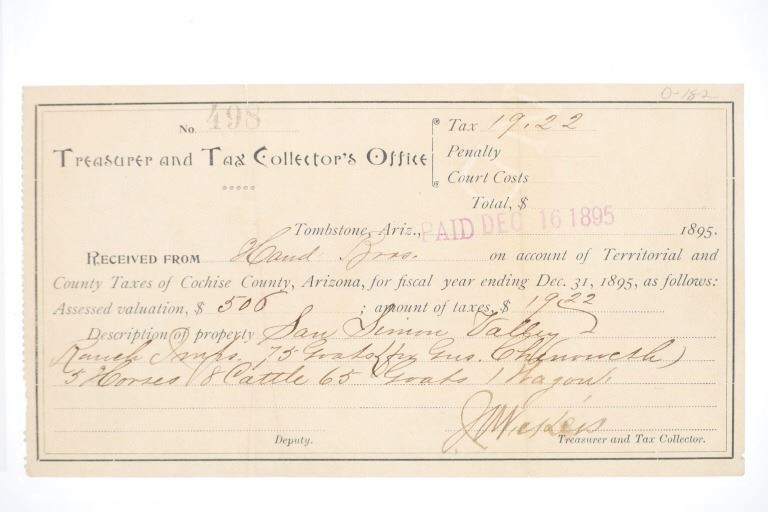 O-182
No. 498
Treasurer and Tax Collector's Office
Tax 19.22
Penalty
Court Costs
Total, $
Tombstone, Ariz., PAID DEC 16 1895 1895.
RECEIVED FROM Hand Bros. on account of Territorial and
County Taxes of Cochise County, Arizona, for fiscal year ending Dec. 31, 1895, as follows:
Assessed valuation, $ 506 ; amount of taxes, $ 19.22
Description of property San Simon Valley
Ranch Imps. 75 Goats (for Gus. Chenoweth)
5 Horses 8 Cattle 65 Goats 1 Wagon.
Deputy.
Treasurer and Tax Collector.